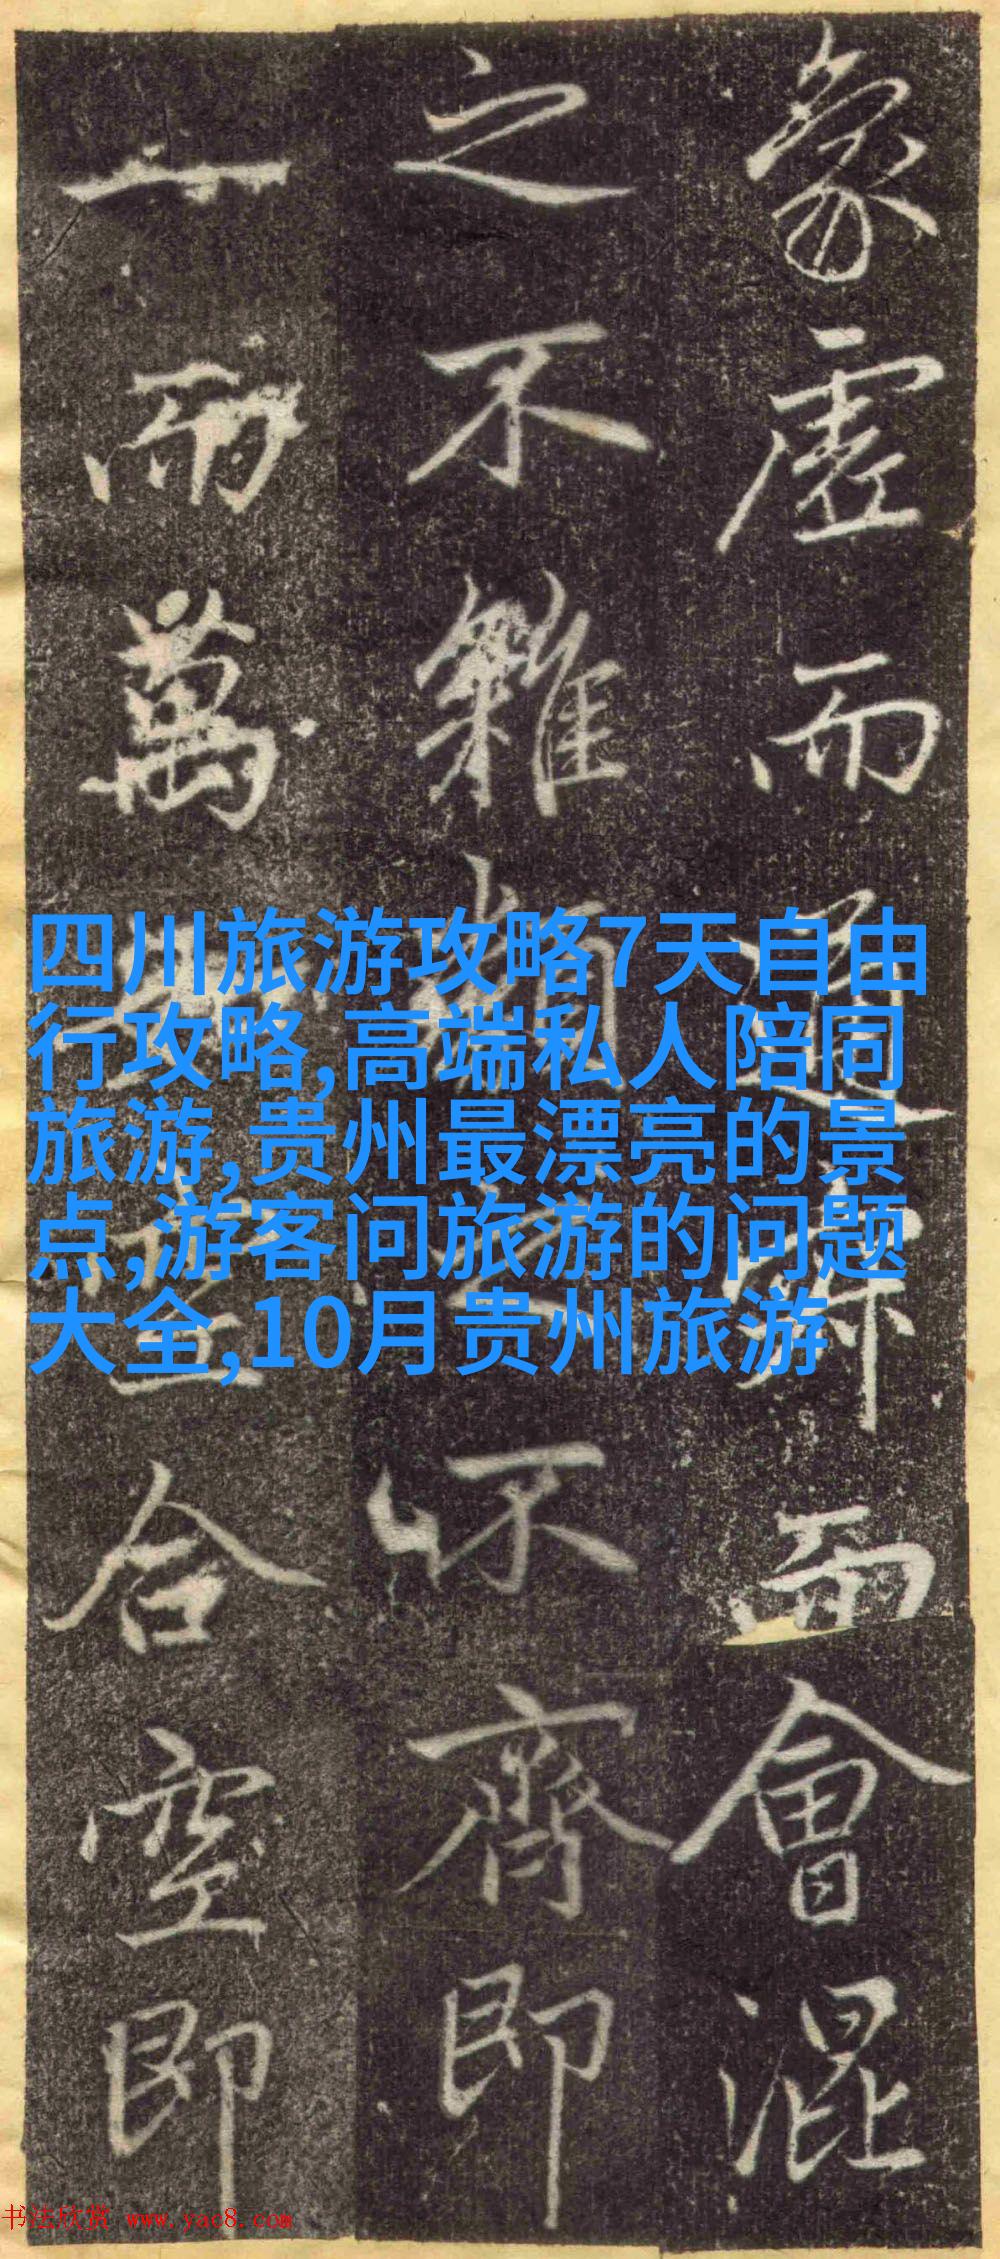 象虛而會混
之不雜不齊即
一而萬合空即
四川旅游攻略7天自由
行攻略,高端私人陪同
旅游,贵州最漂亮的景
点,游客问旅游的问题
大全,10月贵州旅游
书法欣赏 www.yac8.com